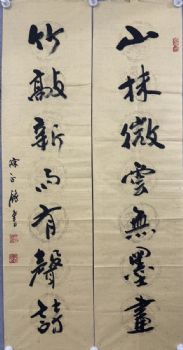 山抹微雲無墨畫
竹敲新雨有聲詩